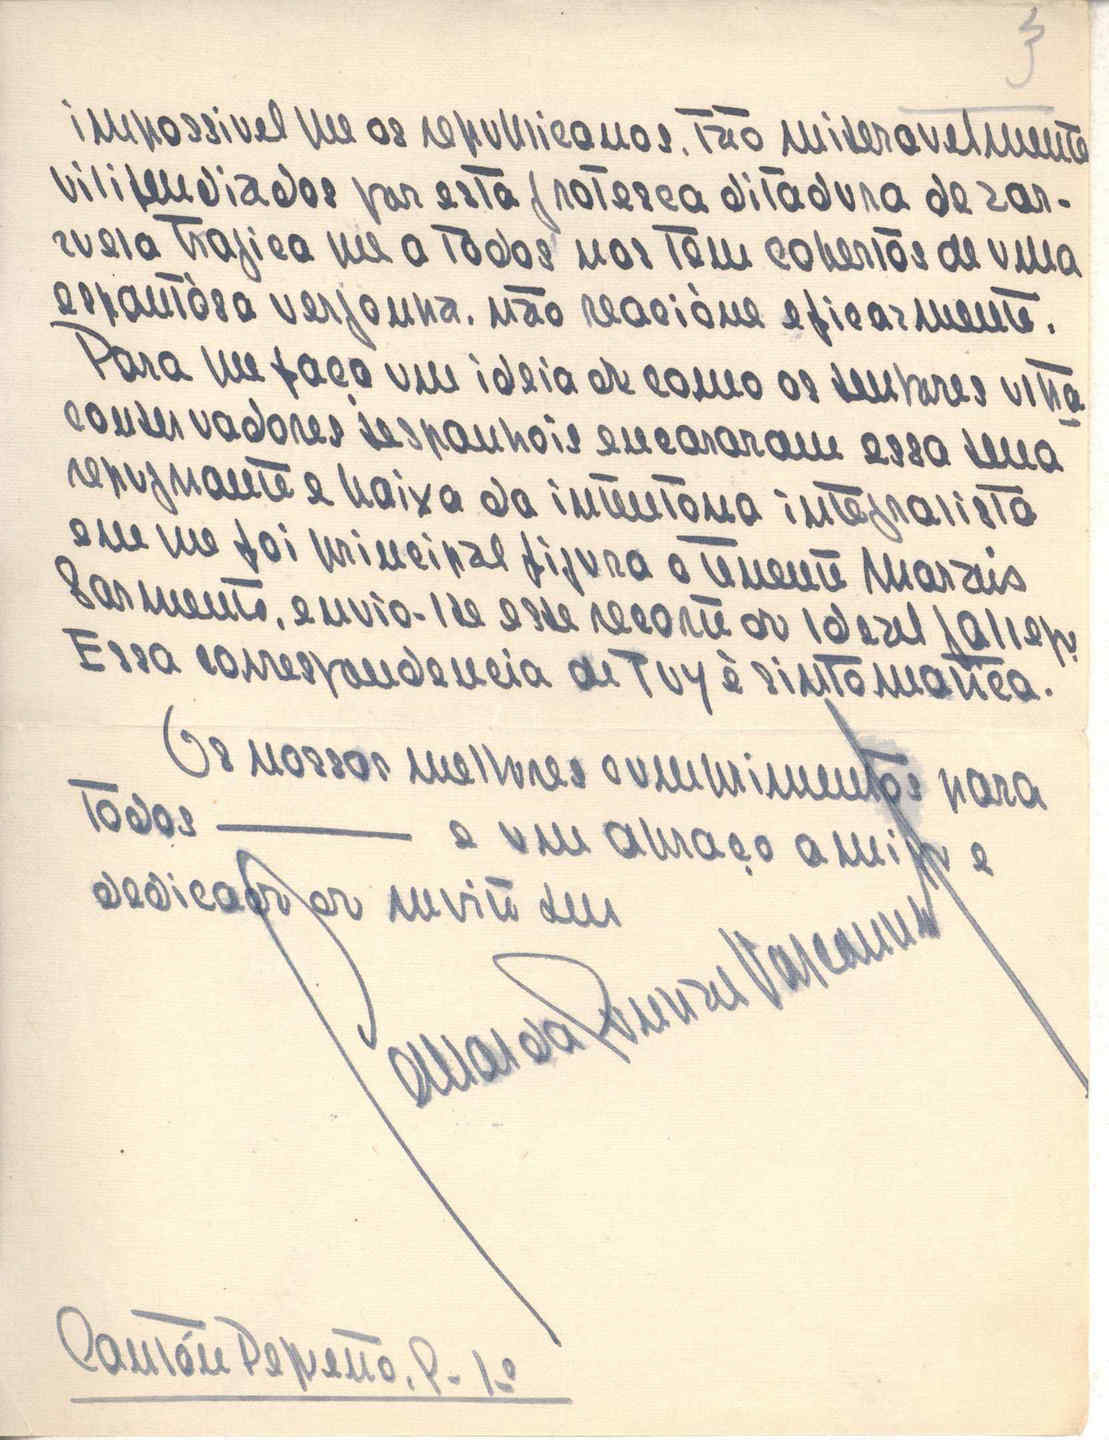 3
impossivel que os republicanos, tão miseravelmente
vilipendiados por esta grotesca ditadura de zar-
zuela tragica que a todos nos tem cobertos de uma
espantósa vergonha, não reaciòne eficazmente.
Para que faça um ideia de como os senhores ultra
conservadores espanhois encararam essa cena
repugnante e baixa da intentona integralista
em que foi principal figura o tenente Moraes
Sarmento, envio-lhe esse recorte do Ideal Gallego.
Essa correspondencia de Tuy è sintomatica.
Os nossos melhores cumprimentos para
todos ——— e um abraço amigo e
dedicado do muito seu
Vasconcelos
Cantón Pequeño, 9-1º